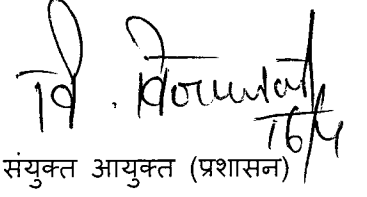 वि.
16/4
संयुक्त आयुक्त (प्रशासन)